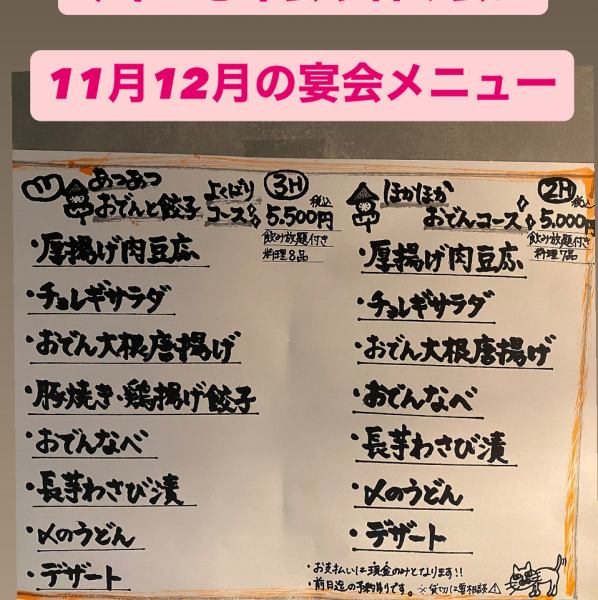 11月12月の宴会メニュー
あつあつ
おでんと餃子
よくばり
コース
3H
税込
5.500円
飲み放題付き
料理8品
・厚揚げ肉豆腐
・チョレギサラダ
・おでん大根唐揚げ
・豚焼き・鶏揚げ餃子
・おでんなべ
・長芋わさび漬
・〆のうどん
・デザート
ほかほか
おでんコース
2H
税込
5.000円
飲み放題付き
料理7品
・厚揚げ肉豆腐
・チョレギサラダ
・おでん大根唐揚げ
・おでんなべ
・長芋わさび漬
・〆のうどん
・デザート
・お支払いは現金のみとなります!!
・前日迄の予約制です。※貸切は要相談